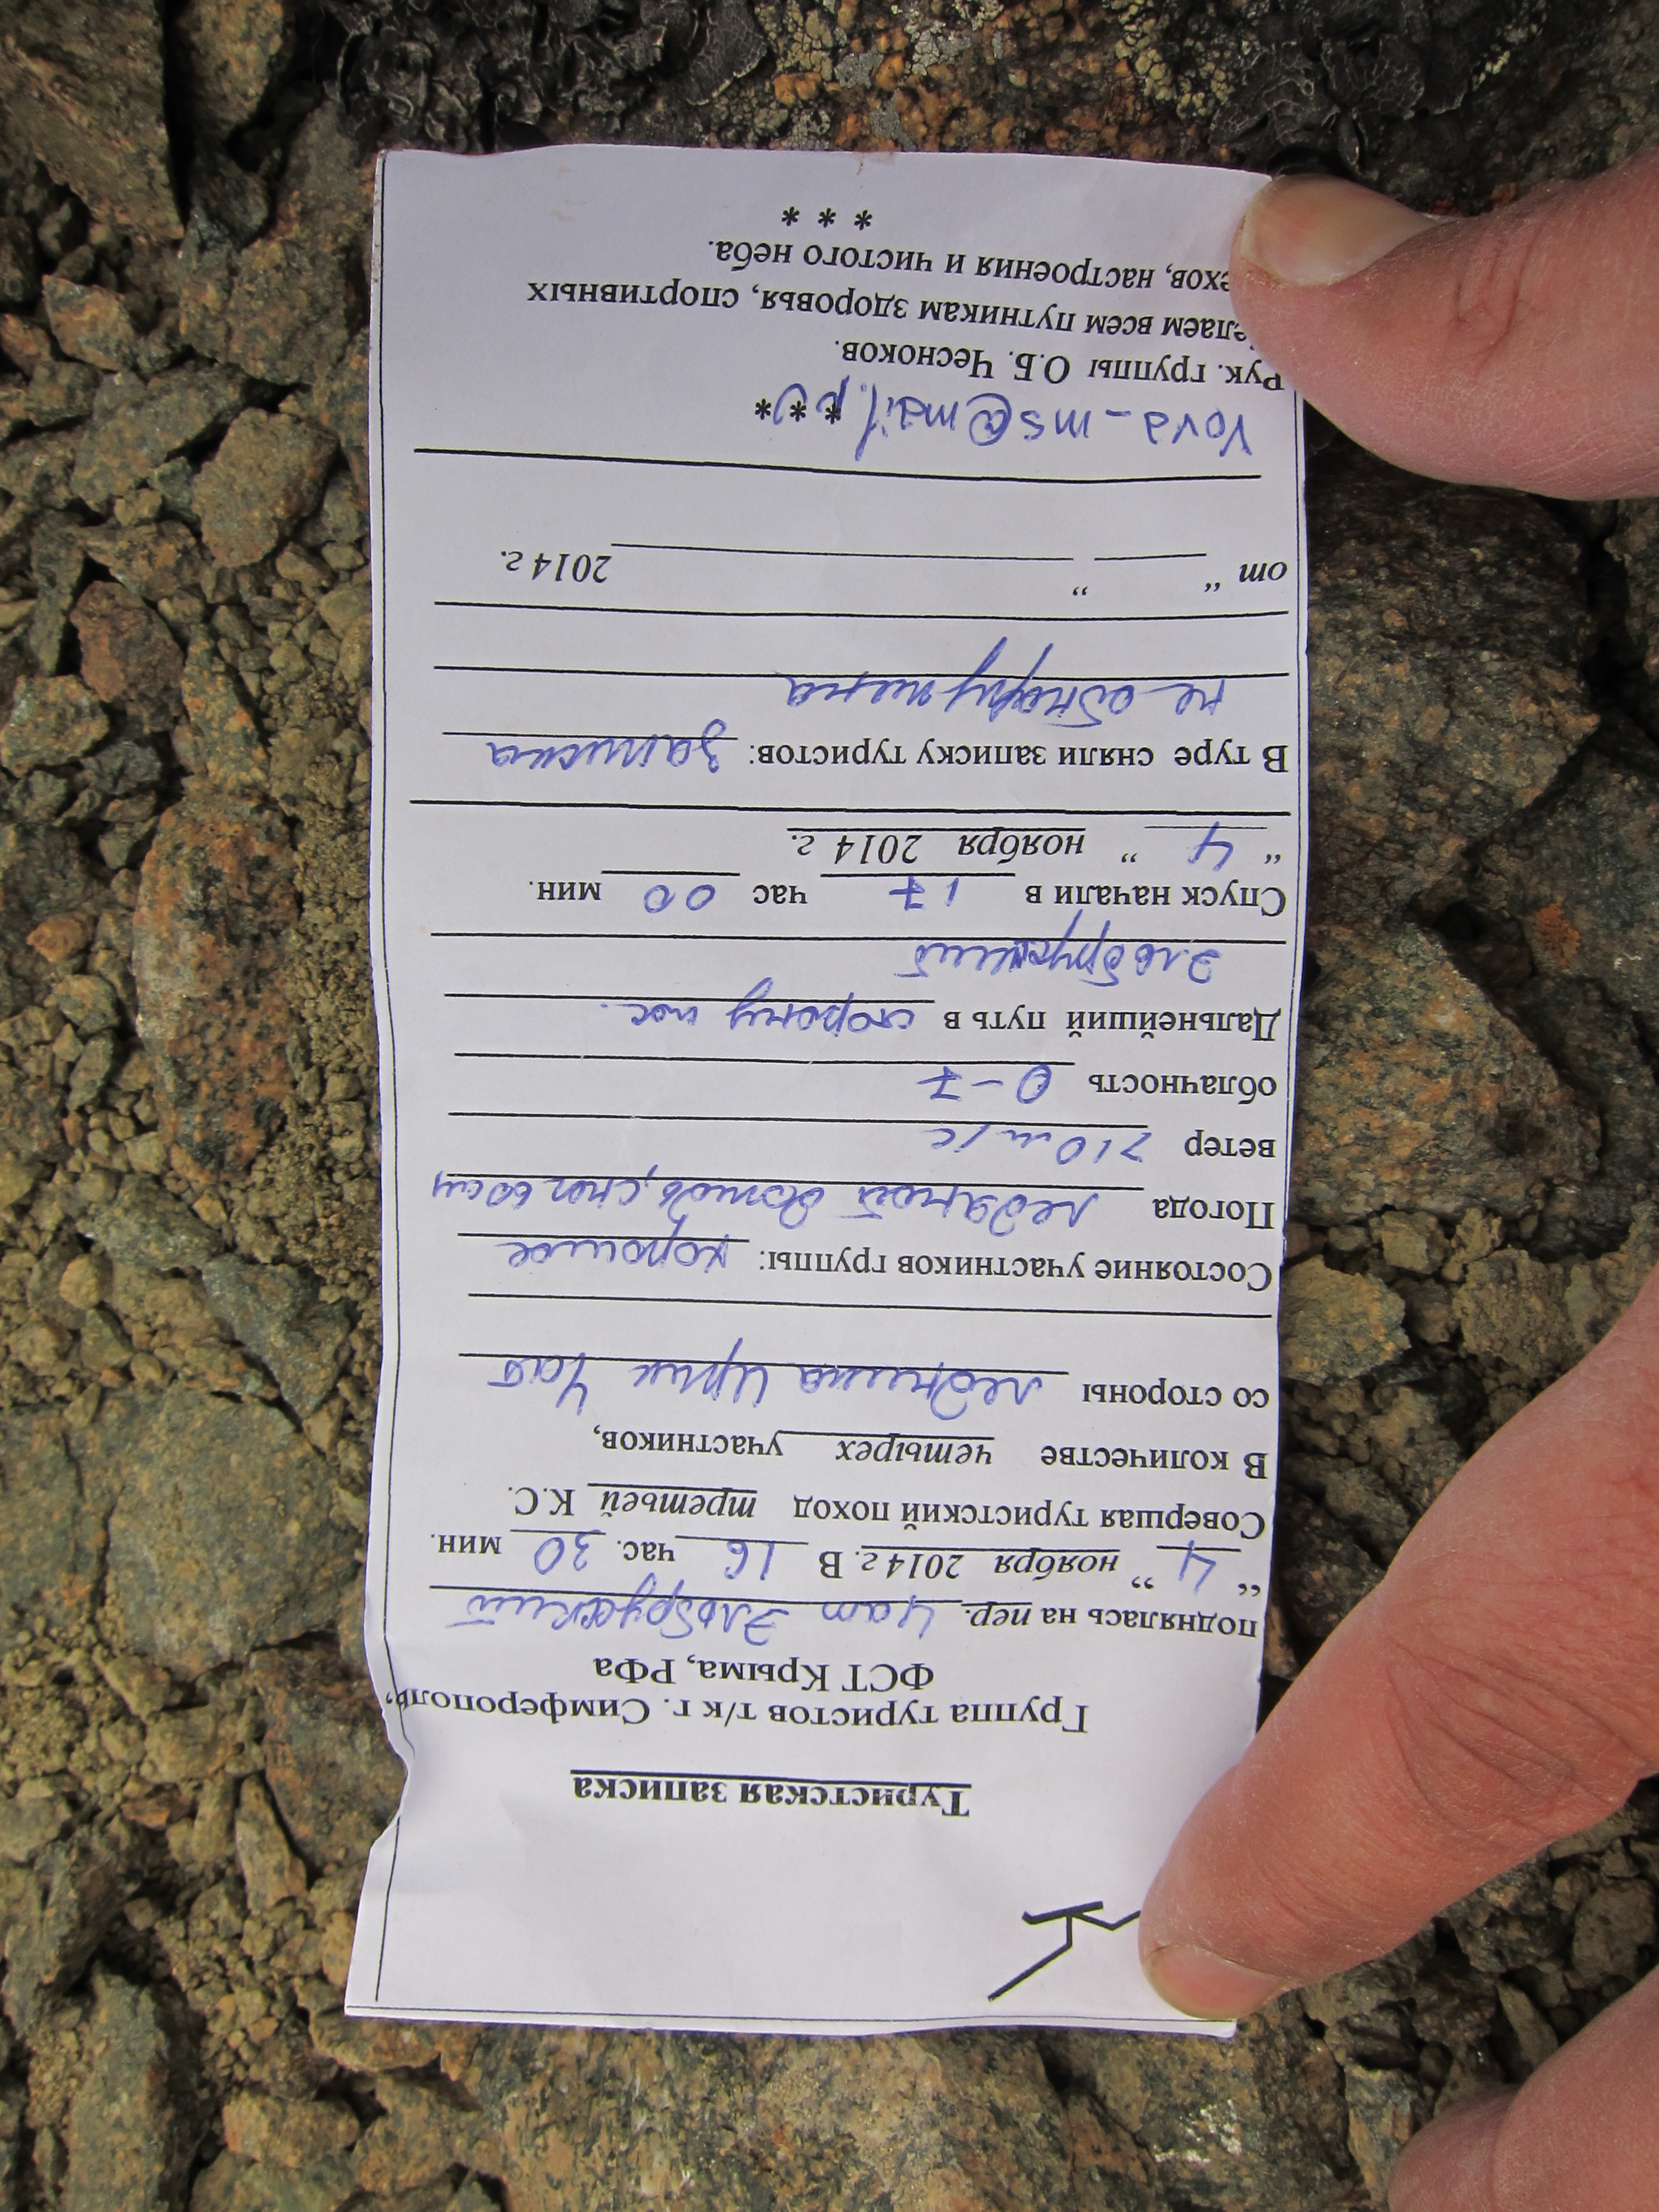 Туристская записка
Группа туристов т/к г. Симферополь,
ФСТ Крыма, РФа
поднялась на пер. Чат Эльбрусский
“ 4 ” ноября 2014 г. В 16 час. 30 мин.
Совершая туристский поход третьей К.С.
В количестве четырех участников,
со стороны ледника Ирик Чат
Состояние участников группы: хорошее
Погода ледяной дождь, снег 60 см
ветер >10 м/с
облачность 0-7
Дальнейший путь в сторону пос.
Эльбрусский
Спуск начали в 17 час 00 мин.
“ 4 ” ноября 2014 г.
В туре сняли записку туристов: записка
не обнаружена
от “ ” 2014 г.
Vova-ms@mail.ru
* * *
Рук. группы О.Б. Чесноков.
елаем всем путникам здоровья, спортивных
ехов, настроения и чистого неба.
* * *